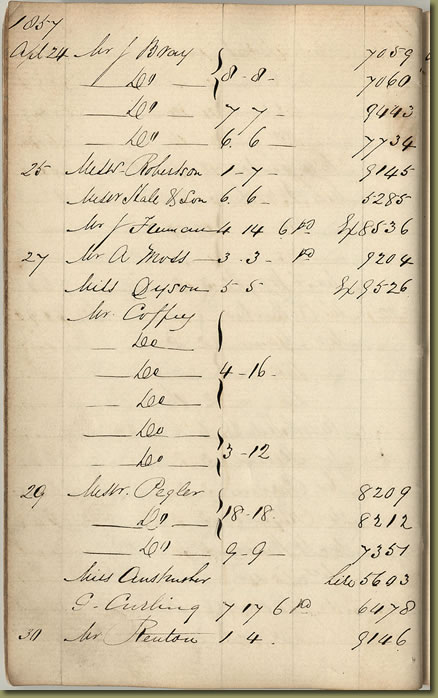 1857
Apl 24 Mr J Bray 7059
Do 8-8- 7060
Do 7 7 - 9443
Do 6. 6 - 7734
25 Messrs. Robertson 1-7- 9145
Messrs Hale & Son 6. 6 - 5285
Mr J 4 14 6 pd Ex 8536
27 Mr A Moss 3-3- pd 9204
Miss Dyson 5 5 Ex 9526
Mr. Coffey
Do
Do 4-16-
Do
Do
Do 3-12
29 Messr. Pegler 8209
Do 18-18. 8212
Do 9-9- 7351
Miss 5603
G. Curling 7 17 6 pd 6478
30 Mr Renton 1 4. 9146